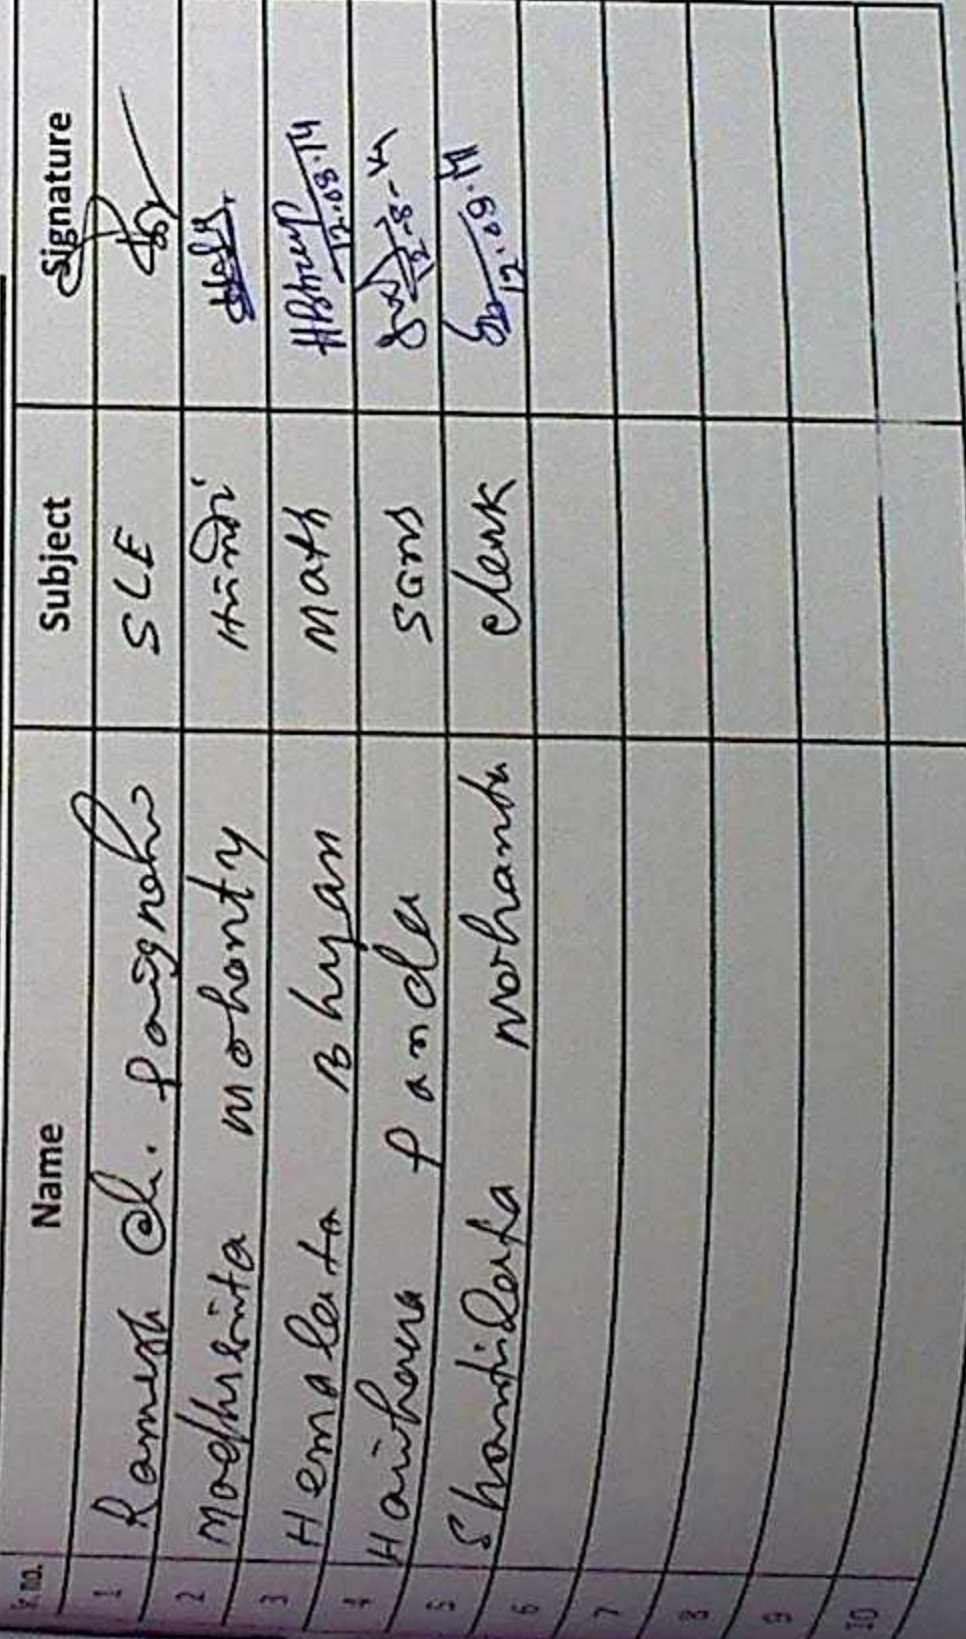 Sr. no. Name Subject Signature
1 Ramesh Ch. SCE
2 Madhusmita Mohanty Hindi
3 Hemalata Bhyan Math HBhyan 12.08.14
4 Harihara Panda 12-8-14
5 Shantilata Mohanta Clerk 12.08.14
6
7
8
9
10